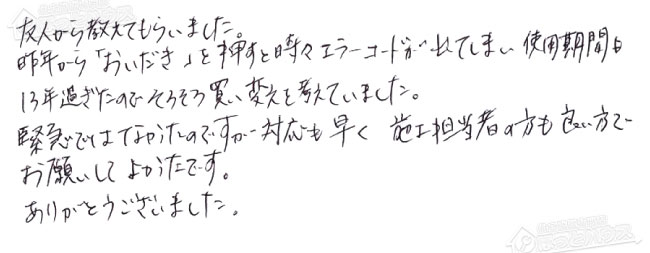 友人から教えてもらいました。
昨年から「おいだき」を押すと時々エラーコードが出てしまい 使用期間も
13年過ぎたのでそろそろ買い変えを考えていました。
緊急ではなかったのですが対応も早く 施工担当者の方も良い方で
お願いしてよかったです。
ありがとうございました。